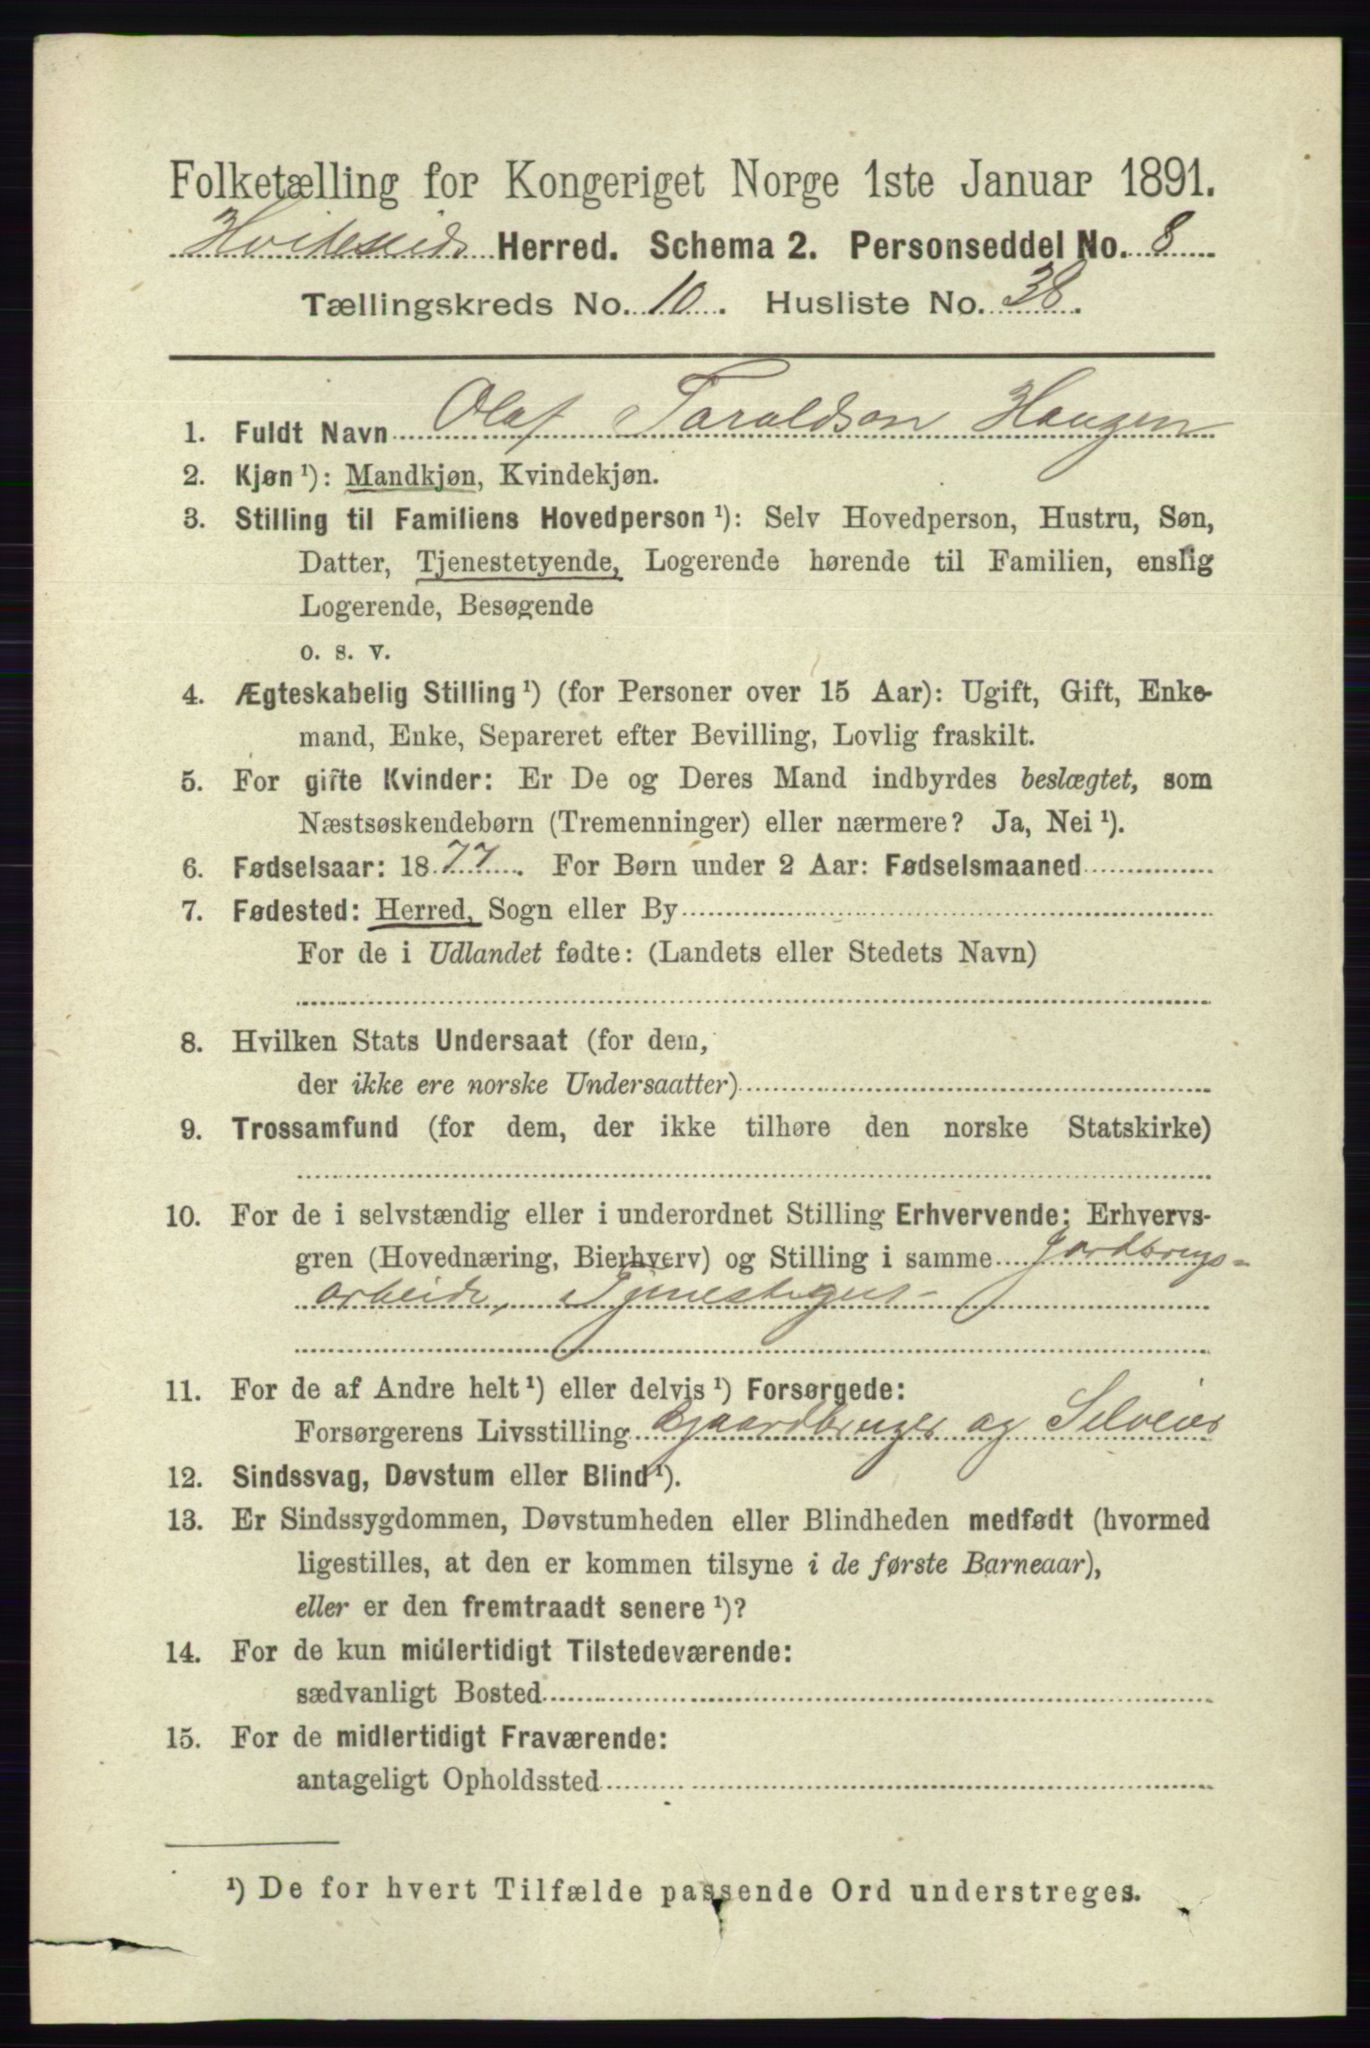 Folketælling for Kongeriget Norge 1ste Januar 1891.
Hviteseid Herred. Schema 2. Personseddel No. 8
Tællingskreds No. 10. Husliste No. 38.
1. Fuldt Navn Olaf Taraldson Haugen
2. Kjøn ¹): Mandkjøn, Kvindekjøn.
3. Stilling til Familiens Hovedperson ¹): Selv Hovedperson, Hustru, Søn,
Datter, Tjenestetyende, Logerende hørende til Familien, enslig
Logerende, Besøgende
o. s. v.
4. Ægteskabelig Stilling ¹) (for Personer over 15 Aar): Ugift, Gift, Enke-
mand, Enke, Separeret efter Bevilling, Lovlig fraskilt.
5. For gifte Kvinder: Er De og Deres Mand indbyrdes beslægtet, som
Næstsøskendebørn (Tremenninger) eller nærmere? Ja, Nei ¹).
6. Fødselsaar: 1877. For Børn under 2 Aar: Fødselsmaaned
7. Fødested: Herred, Sogn eller By
For de i Udlandet fødte: (Landets eller Stedets Navn)
8. Hvilken Stats Undersaat (for dem,
der ikke ere norske Undersaatter)
9. Trossamfund (for dem, der ikke tilhøre den norske Statskirke)
10. For de i selvstændig eller i underordnet Stilling Erhvervende: Erhvervs-
gren (Hovednæring, Bierhverv) og Stilling i samme Jordbrugs-
arbeide, Tjenestegut
11. For de af Andre helt ¹) eller delvis ¹) Forsørgede:
Forsørgerens Livsstilling Gaardbruger og Selveier
12. Sindssvag, Døvstum eller Blind ¹).
13. Er Sindssygdommen, Døvstumheden eller Blindheden medfødt (hvormed
ligestilles, at den er kommen tilsyne i de første Barneaar),
eller er den fremtraadt senere ¹)?
14. For de kun midlertidigt Tilstedeværende:
sædvanligt Bosted
15. For de midlertidigt Fraværende:
antageligt Opholdssted
¹) De for hvert Tilfælde passende Ord understreges.